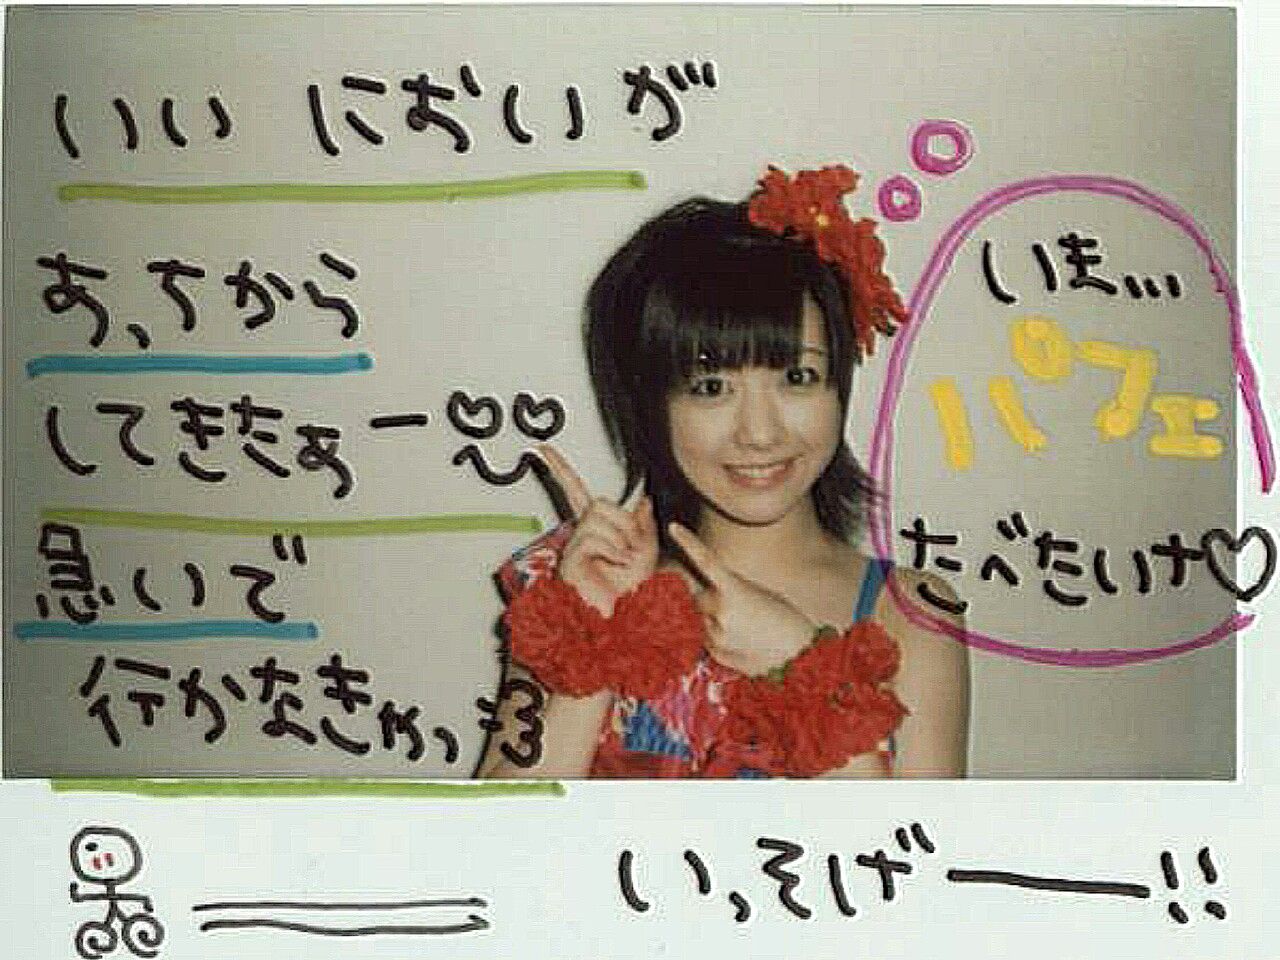 いい においが
あっちから
してきたぁー
急いで
行かなきゃっ
いま...
パフェ
たべたいナ♡
いっそげー!!